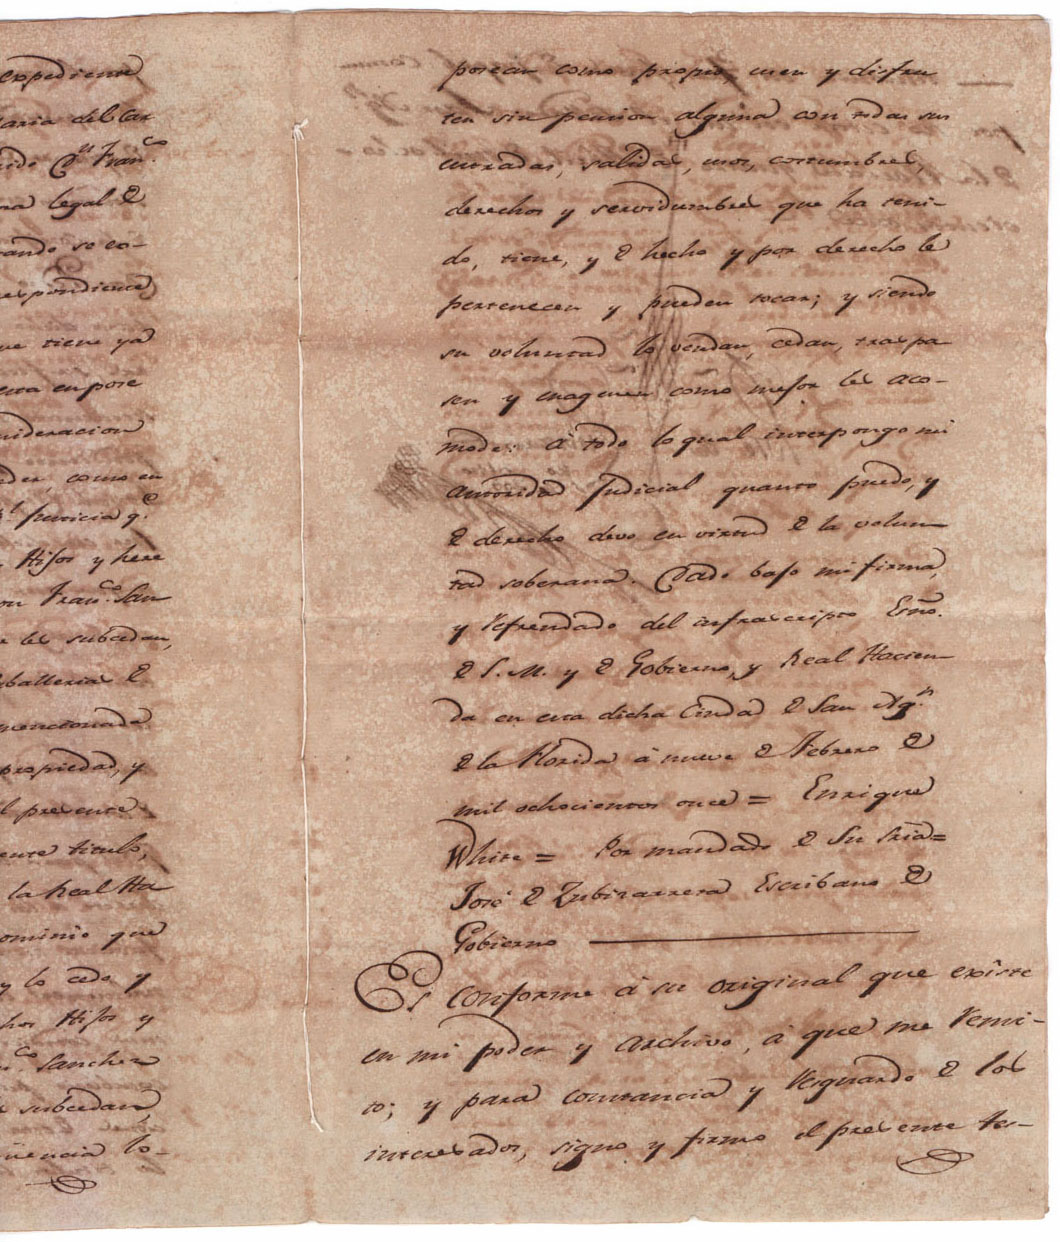 expediente
Maria del Car
Fran.co
legal de
se co-
respondiente
que tiene ya
esta en pose
consideracion
como en
justicia q.e
Hijos y here
Don Fran.co San
les subcedan,
Caballerias de
mencionada
propiedad, y
el presente
titulo,
la Real Ha
dominio que
y lo cedo y
Hijos y
Fran.co Sanchez
subcedan
lo-
posean como propio, usen y disfru
ten sin pencion alguna con todas sus
entradas, salidas, usos, costumbres,
derechos y servidumbres que ha teni-
do, tiene, y de hecho y por derecho le
pertenecen y pueden tocar; y siendo
su voluntad lo vendan, cedan, traspa
sen y enagenen como mejor les aco-
mode: á todo lo qual interpongo mi
autoridad Judicial quanto puedo, y
de derecho devo en virtud de la volun
tad soberana. Dado bajo mi firma,
y Refrendado del infraescripto Esño.
de S. M. y de Gobierno, y Real Hacien
da en esta dicha Ciudad de San Ag.n
de la Florida á nueve de Febrero de
mil ochocientos once = Enrique
White = Por mandado de Su Sria=
José de Zubizarreta Escribano de
Gobierno
Es conforme á su original que existe
en mi poder y archivo, á que me Remi-
to; y para constancia y Resguardo de los
interesados, signo y firmo el presente tes-